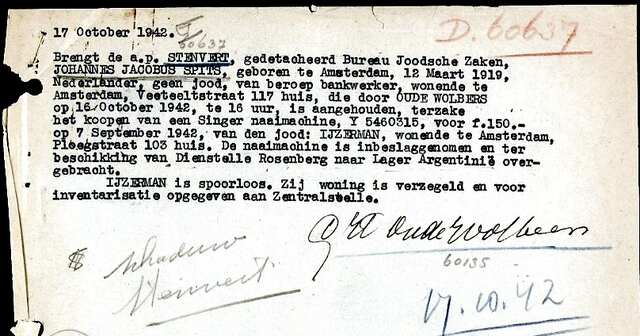 17 October 1942.
60637
D. 60637
Brengt de a.p. STENVERT, gedetacheerd Bureau Joodsche Zaken,
JOHANNES JACOBUS SPITS, geboren te Amsterdam, 12 Maart 1919,
Nederlander, geen jood, van beroep bankwerker, wonende te
Amsterdam, Veeteeltstraat 117 huis, die door OUDE WOLBERS
op 16 October 1942, te 16 uur, is aangehouden, terzake
het koopen van een Singer naaimachine, Y 5460315, voor f.150.—
op 7 September 1942, van den jood: IJZERMAN, wonende te Amsterdam,
Ploegstraat 103 huis. De naaimachine is inbeslaggenomen en ter
beschikking van Dienstelle Rosenberg naar Lager Argentinië over-
gebracht.
IJZERMAN is spoorloos. Zij woning is verzegeld en voor
inventarisatie opgegeven aan Zentralstelle.
Oude Wolbers
Schaduw
Stenvert
60135
17.10.42